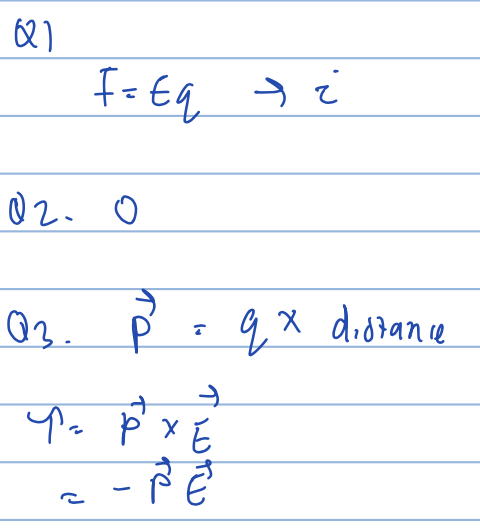 Q1
F = Eq → i
Q2. 0
Q3. P⃗ = q × distance
τ = P⃗ × E⃗
= - P⃗ E⃗